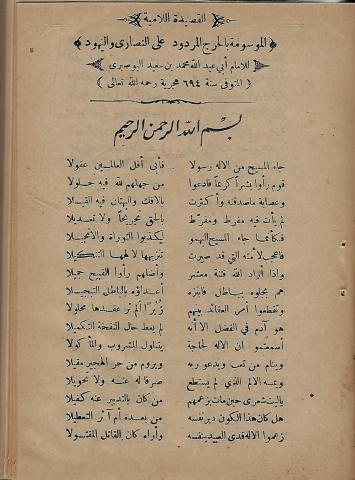 القصيدة اللامية
الموسومة بالحرج المردود على النصارى واليهود
للامام أبي عبد الله محمد بن سعيد البوصيري
( المتوفى سنة ٦٩٤ هجرية رحمه الله تعالى )
بسم الله الرحمن الرحيم
جاء المسيح من الاله رسولا فأبى أقل العالمين عقولا
قوم رأوا بشرا كريما فادعوا من جهلهم لله فيه حلولا
وعصابة ماصدقته وأكثرت بالافك والبهتان فيه القيلا
لم يأت فيه مفرط ومفرط بالحق تجريحا ولا تعديلا
فكأنما جاء المسيح اليهمو ليكذبوا التوراة والانجيلا
فاعجب لأمته التي قد صيرت تنزيهها لالهها التنكيلا
واذا أراد الله فتنة معشر وأضلهم رأوا القبيح جميلا
هم بجلوه بباطل فابتزه أعداؤه بالباطل التبجيلا
وتقطعوا أمر العقائد بينهم زبرا ألم تر عقدها محلولا
هو آدم في الفضل الا أنه لم يعط حال النفخة التكميلا
أسمعتمو ان الاله لحاجة يتناول المشروب والمأكولا
وينام من تعب ويدعو ربه ويروم من حر الهجير مقيلا
ويمسه الالم الذي لم يستطع صرفا له عنه ولا تحويلا
ياليت شعرى حين مات بزعمهم من كان بالتدبير عنه كفيلا
هل كان هذا الكون دبر نفسه من بعده أم آثر التعطيلا
زعموا الاله فدى العبيد بنفسه وأراه كان القاتل المقتولا